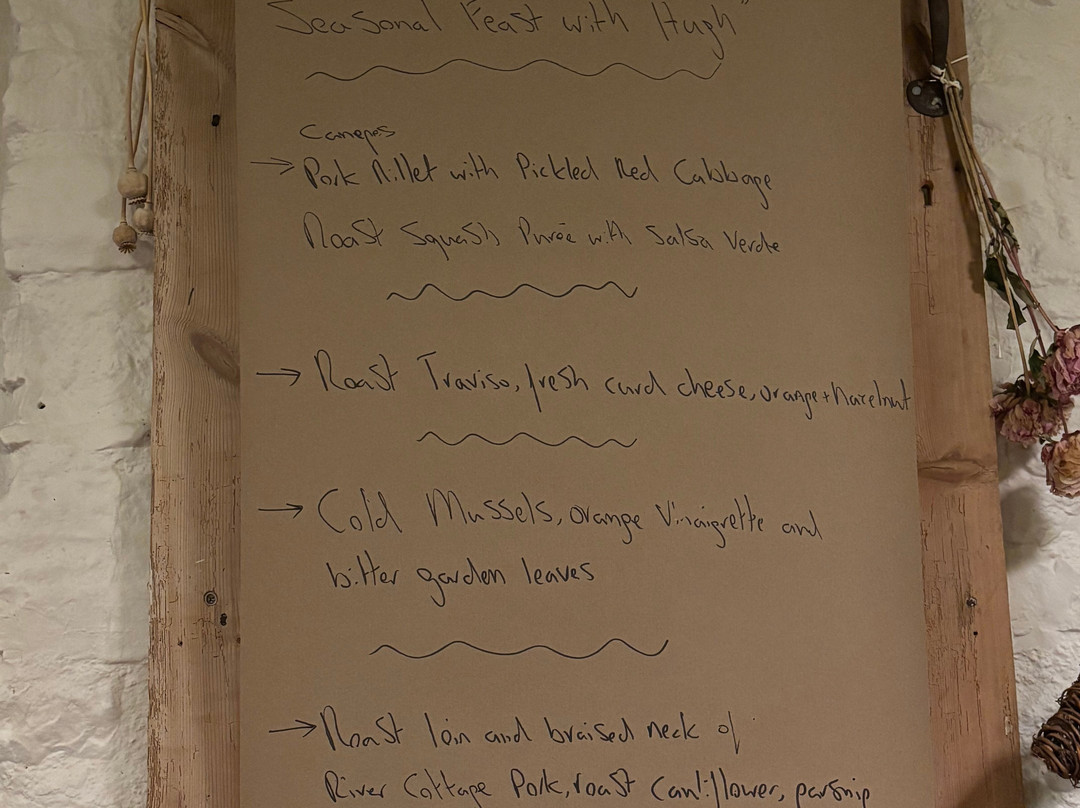 Seasonal Feast with Hugh"
Canepes
→ Pork Rillet with Pickled Red Cabbage
Roast Squash Purée with Salsa Verde
→ Roast Traviso, fresh curd cheese, orange + hazelnut
→ Cold Mussels, orange Vinaigrette and
bitter garden leaves
→ Roast loin and braised neck of
River Cottage Pork, roast Cauliflower, parsnip